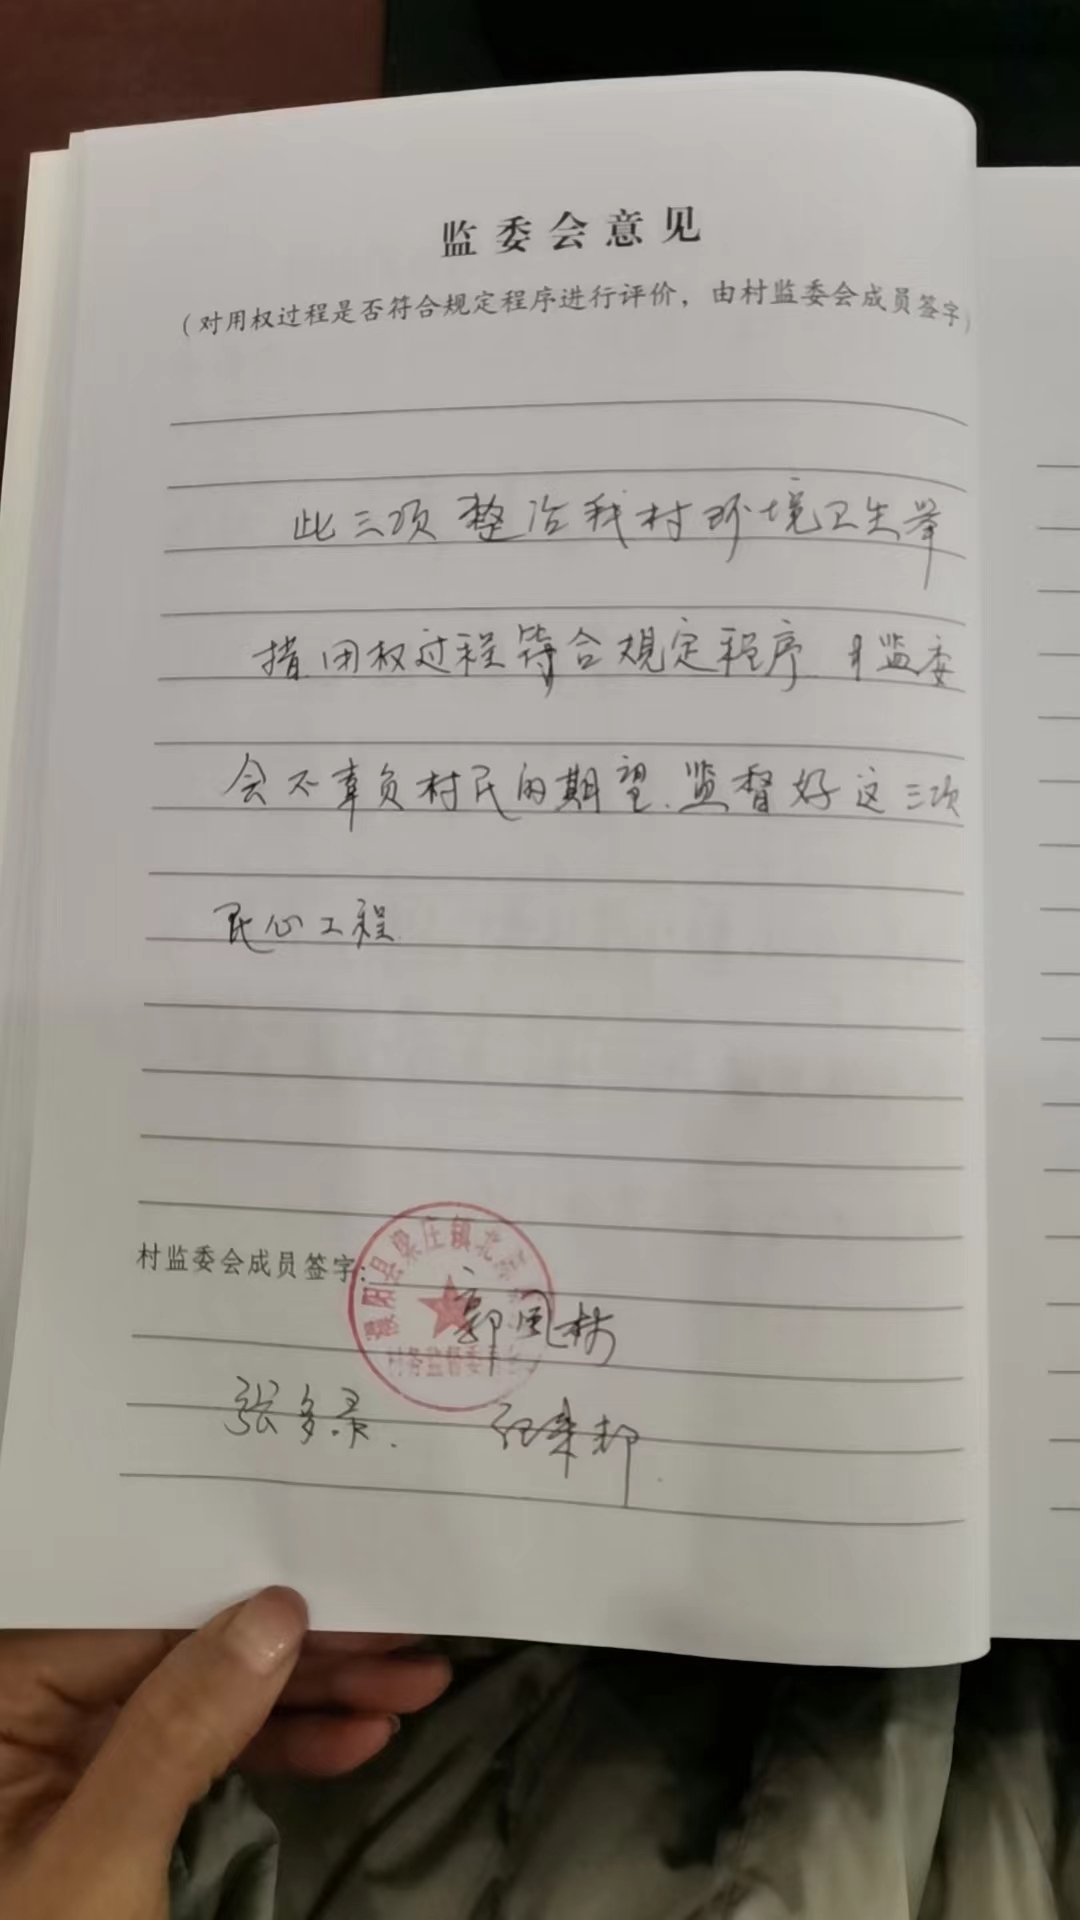 监委会意见
（对用权过程是否符合规定程序进行评价，由村监委会成员签字）
此三项整治我村环境卫生举
措用权过程符合规定程序 监委
会不辜负村民的期望.监督好这三项
民心工程.
濮阳县梁庄镇北
村务监督委员会
村监委会成员签字：
郭凤林
张多录.